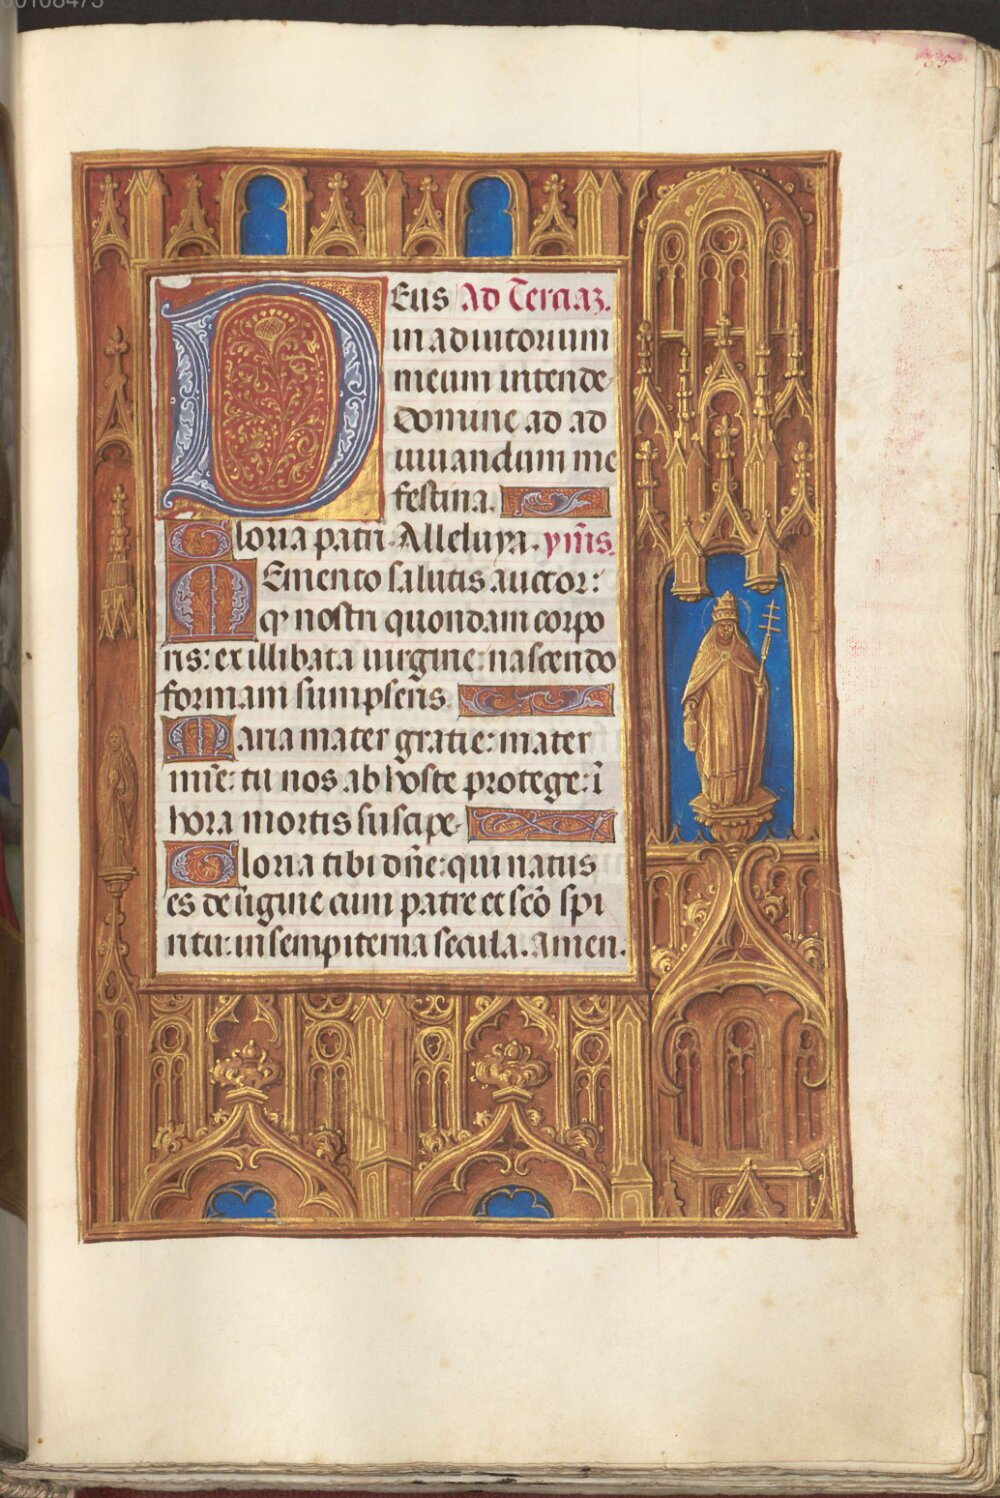 00108473
Deus Ad Terciaz.
in adiutorium
meum intende
Domine ad ad
iuuandum me
festina.
Gloria patri. Alleluya. ymis.
Memento salutis auctor:
qp nostri quondam corpo
ris: ex illibata uirgine: nascendo
formam sumpseris.
Maria mater gratie: mater
mie: tu nos ab hoste protege: i
hora mortis suscipe.
Gloria tibi dne: qui natus
es de uigine cum patre et sco spi
ritu: in sempiterna secula. amen.